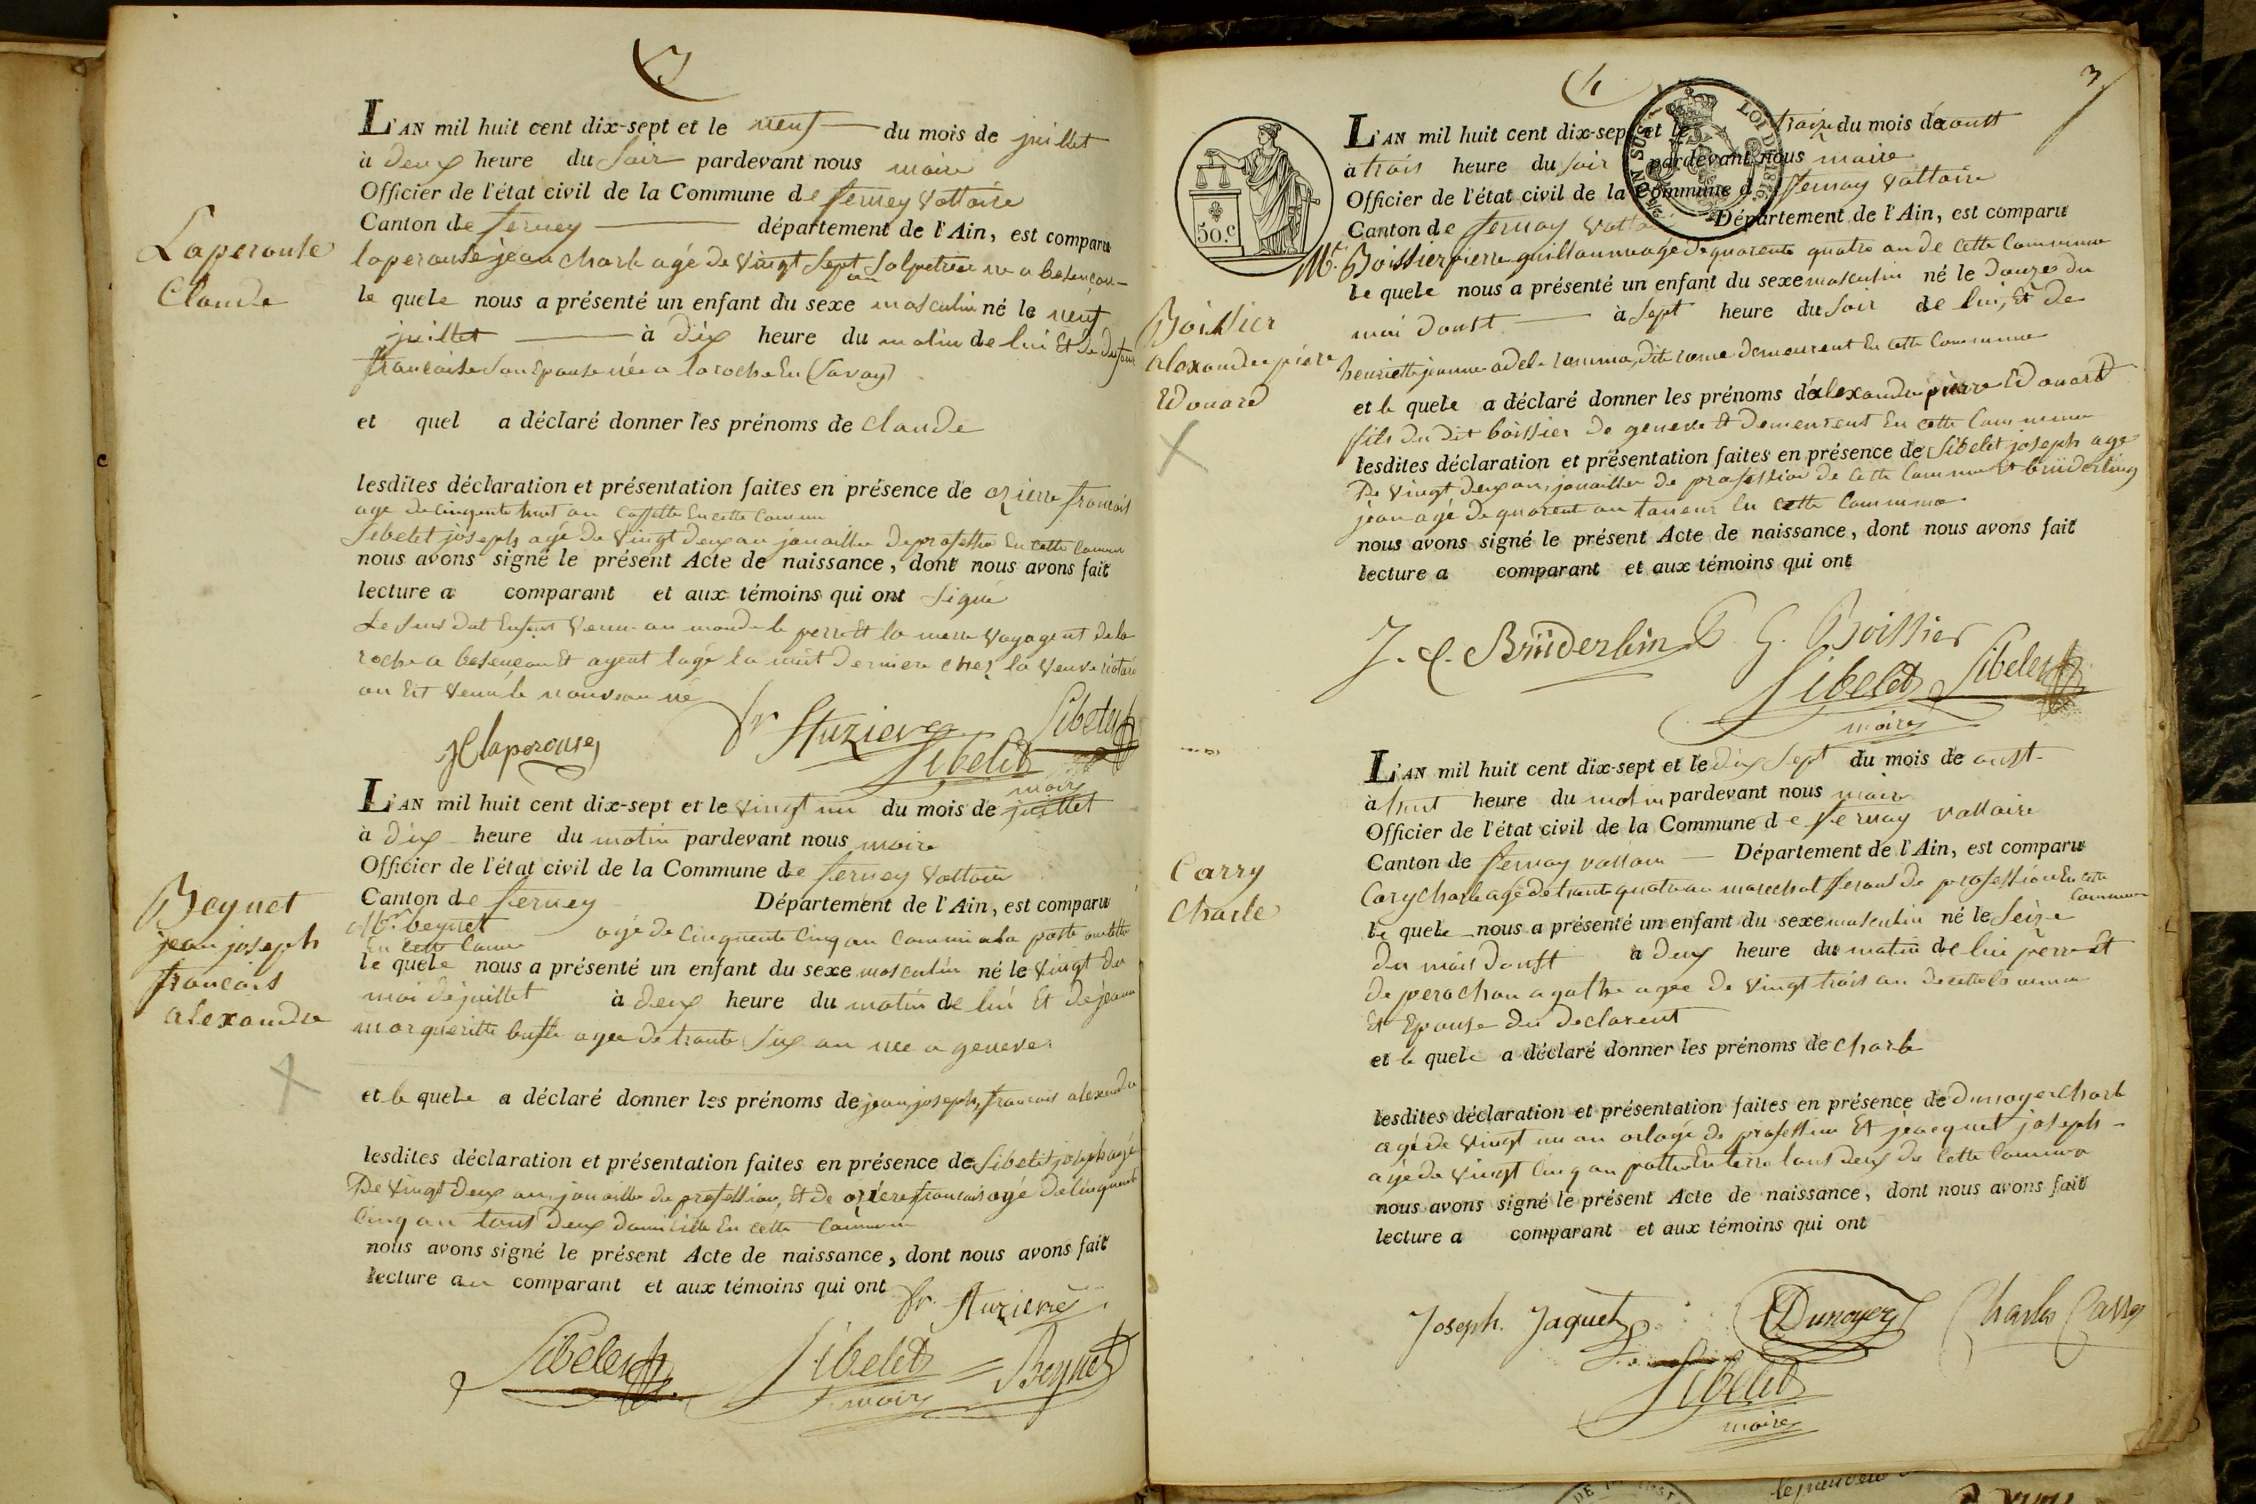 L'AN mil huit cent dix-sept et le neuf du mois de juillet
à deux heure du Soir pardevant nous maire
Officier de l'état civil de la Commune de ferney voltaire
Canton de ferney département de l'Ain, est comparu
Laperouse
Claude
laperouse jean charle agé de vingt sept an Salpetrier ne a besencon
le quele nous a présenté un enfant du sexe masculin né le neuf
juillet à dix heure du matin de lui Et de
francaise Son Epouse née a la roche En Savoy
et quel a déclaré donner les prénoms de claude
lesdites déclaration et présentation faites en présence de ozierre francois
age de cinquente huit an En cette Commun
Sibelet joseph agé de vingt deux an jouaillier de professio En cette Commun
nous avons signé le présent Acte de naissance, dont nous avons fait
lecture a comparant et aux témoins qui ont Signé
Le Sus dit Enfent venu au monde le perre Et la merre voyagent de la
roche a besencon Et ayent logé la nuit derniere chez la veuve
ou Est venu le nouveau né
JC laperouse
fr Auziere
Sibelet
Sibelet
maire
L'AN mil huit cent dix-sept et le vingt un du mois de juillet
à dix heure du matin pardevant nous maire
Officier de l'état civil de la Commune de ferney voltaire
Canton de ferney Département de l'Ain, est comparu
Beynet
jean joseph
francois
alexandre
Mr. beynet agé de cinquente cinq an commi a la poste au lettre
En cette Comm
le quele nous a présenté un enfant du sexe masculin né le vingt du
moi de juillet à deux heure du matin de lui Et de jeanne
margueritte agee de trante Six an nee a geneve
et le quele a déclaré donner les prénoms de jean, joseph, francois alexandre
lesdites déclaration et présentation faites en présence de Sibelet joseph agé
De vingt deux an, jouaillier de profession, Et de oziere francois agé de cinquente
cinq an tous deux domicillie En cette Commun
nous avons signé le présent Acte de naissance, dont nous avons fait
lecture au comparant et aux témoins qui ont
fr. Auziere
Sibelet
Sibelet
maire
Beynet
4
3
LOI DE 1816
50.c
L'AN mil huit cent dix-sept et le traize du mois de aoust
à trois heure du soir pardevant nous maire
Officier de l'état civil de la Commune d fernay voltaire
Canton de fernay Département de l'Ain, est comparu
Mr. Boissier pierre guillaume age de quarente quatre an de cette Commune
le quele nous a présenté un enfant du sexe masculin né le douze du
Boissier
alexandre piere
Edouard
moi doust à Sept heure du Soir de lui, Et de
henriette jeanne adele dite rome demeurent En cette Commune
et le quele a déclaré donner les prénoms de alexandre pierre Edouard
fils du dit boissier de geneve Et demeurent En cette Commune
lesdites déclaration et présentation faites en présence de Sibelet joseph age
De vingt deux an, jouaillier de profession de cette Commune Et brüderling
jean agé de quarent an tanneur En cette Commune
nous avons signé le présent Acte de naissance, dont nous avons fait
lecture a comparant et aux témoins qui ont
J. C. Brüderlin
P. G. Boissier
Sibelet
Sibelet
maire
L'AN mil huit cent dix-sept et le dix Sept du mois de oust
à huit heure du matin pardevant nous maire
Officier de l'état civil de la Commune de fernay voltaire
Canton de fernay voltaire Département de l'Ain, est comparu
Carry
Charle
Cary Charle age de trante quatre an marechal ferant de profession En cette
Commune
le quele nous a présenté un enfant du sexe masculin né le Seize
du mois doust à deux heure du matin de lui perre Et
de perachon agathe agee de vingt trois an de cette Commune
Et Epouse du declarent
et le quele a déclaré donner les prénoms de charle
lesdites déclaration et présentation faites en présence de Dunoyer Charle
agé de vingt un an orlogé de profession Et jeacquet joseph
age de vingt Cinq an En terre tous deux de cette Commune
nous avons signé le présent Acte de naissance, dont nous avons fait
lecture a comparant et aux témoins qui ont
Joseph. Jaquet
Dunoyer
Charles Carry
Sibelet
maire